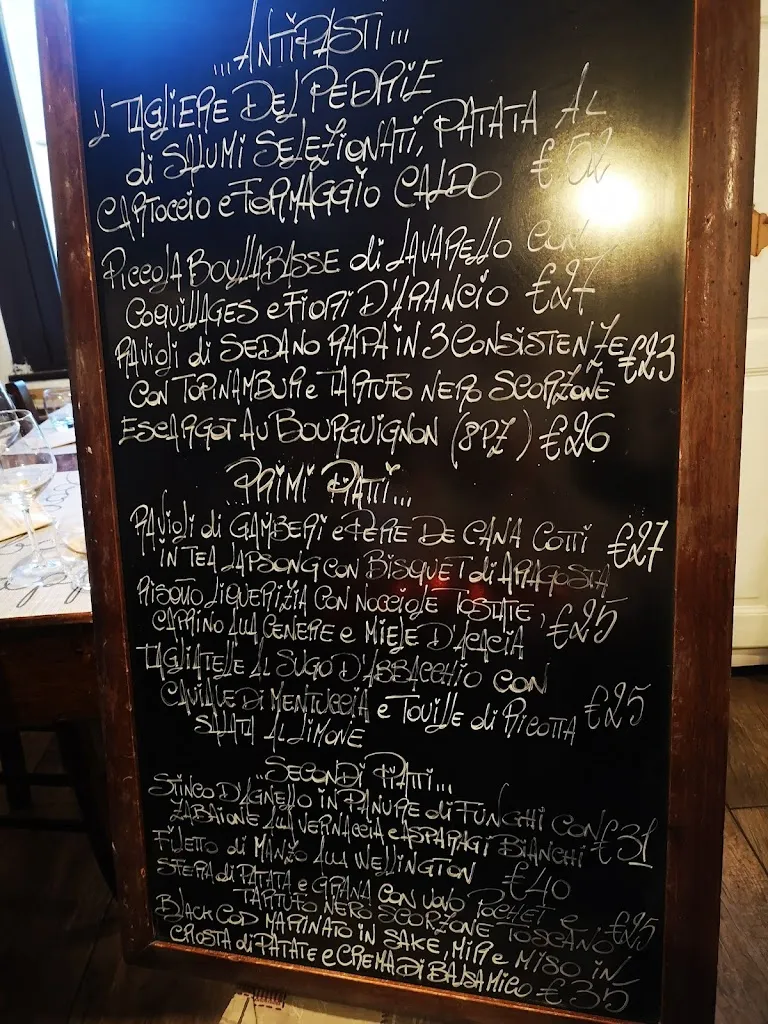 ...ANTIPASTI...
IL TAGLIERE DEL PEDRIE
di SALUMI SELEZIONATI, PATATA AL
CARTOCCIO e FORMAGGIO CALDO €52
PiccolA BOULLABASSE di LAVARELLO CON
COQUILLAGES e FIORI D'ARANCIO €27
RAVIOLI di SEDANO RAPA iN 3 CONSiSTENZE €23
CON TOPINAMBUR e TARTUFO NERO SCORZONE
ESCARGOT AU BOURGUIGNON (8PZ) €26
...PRIMI PIATTI...
RAVIOLI di GAMBERI e PERE DE CANA COTTI €27
IN TEA LAPSONG CON BISQUET di ARAGOSTA
RISOTTO LIQUERIZIA CON NOCCIOLE TOSTATE,
CAPRINO ALLA CENERE e MIELE D'ACACIA €25
TAGLIATELLE AL SUGO D'ABBACCHIO CON
CAVIALE DI MENTUCCIA e TOUILLE di RICOTTA €25
SALATA AL LIMONE
...SECONDI PIATTI...
STINCO D'AGNELLO IN PANURE di FUNGHI CON
ZABAIONE ALLA VERNACCIA e ASPARAGI BIANCHI €31
FILETTO di MANZO ALLA WELLINGTON €40
SFERA di PATATA e GRANA CON UOVO POCHET e
TARTUFO NERO SCORZONE TOSCANO €25
BLACK COD MARINATO IN SAKE, MIR e MISO IN
CROSTA di PATATE e CREMA DI BALSAMICO €35